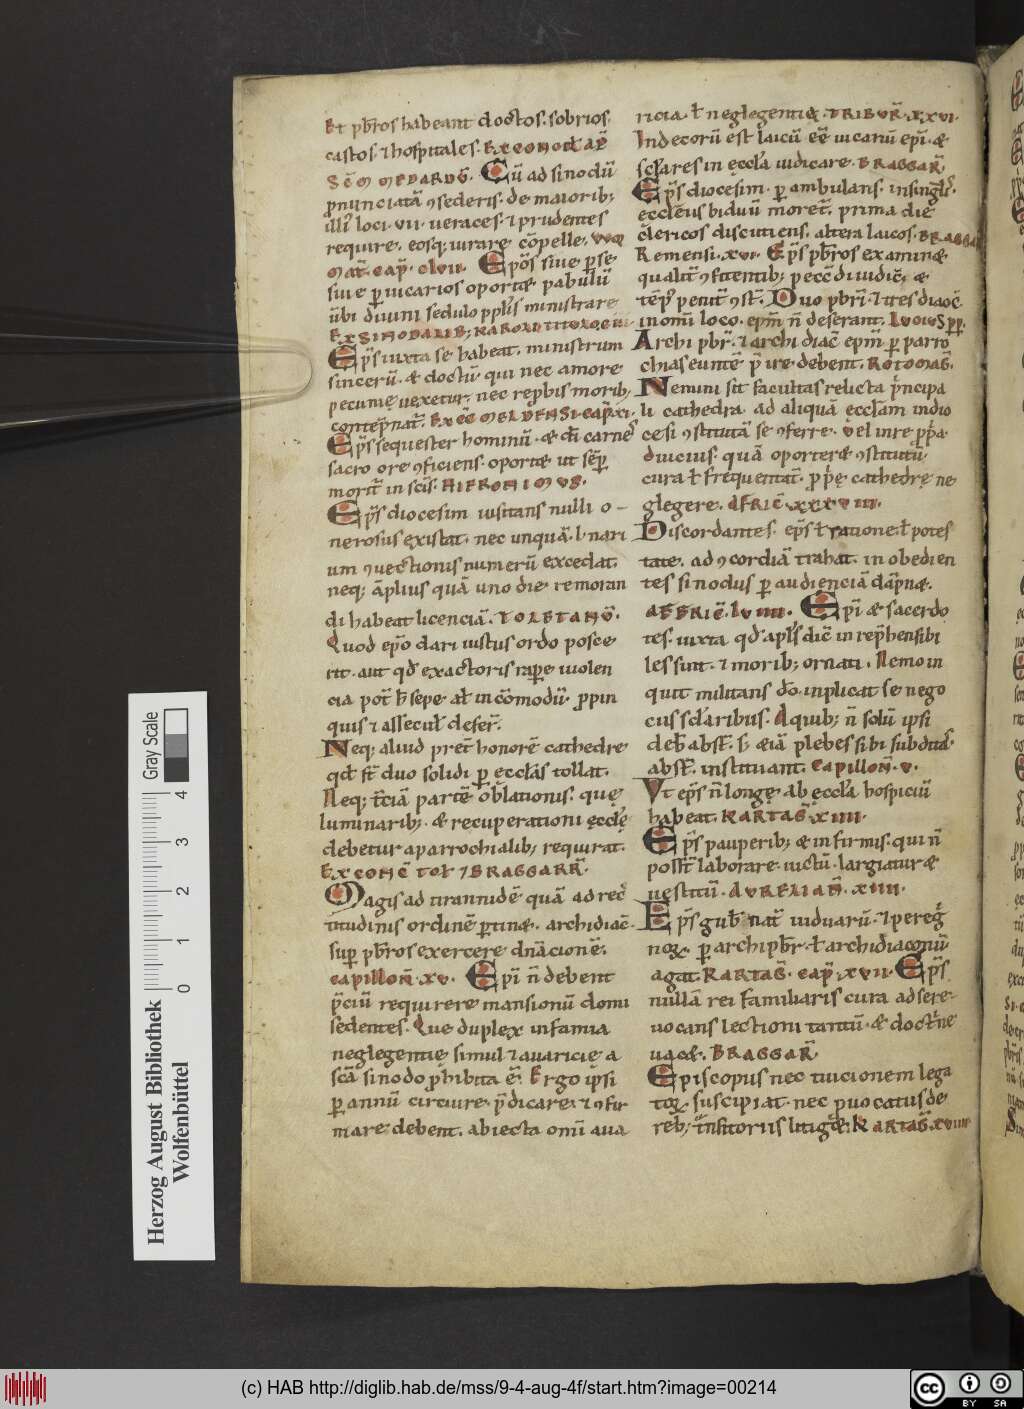 Et pb̄ros habeant doctos. sobrios.
castos. ⁊ hospitales. EX CONCIL̄ AP̄
SC̄M MEDARDV̄. Cū ad sinodū
p̄nunciatā ꝯsederis. de maiorib;
illi' loci. vii. veraces. ⁊ prudentes
require. eosq; iurare cōpelle. 
MAT̄. CAP̄. CLVII. Ep̄os siue p se
siue p uicarios oportet pabulū
ūbi diuini sedulo pplis ministrare
EX SINODALIB; KAROLI
Ep̄s iuxta se habeat. ministrum
sincerū. & doctū. qui nec amore
pecunię uexetur. nec reprobis morib;
contēpnat̄. EX CC̄ MELDENSI. CAP̄. XI.
Ep̄s sequester hominū. & d̄i carnes
sacro ore ꝯficiens. oportet ut semp
morit̄ in scīs. HIERONIMVS.
Ep̄s diocesim uisitans nulli o-
nerosus existat. nec unquā. l. nari
um ꝯuectionis numerū excedat.
neq; āplius quā uno die remoran
di habeat licenciā. TOLETANV̄.
Quod ep̄o dari iustus ordo posce
rit. aut qd̄ exactoris rapere uiolen
cia pot̄ h̄ sepe al̄ in cōmodū. ppin
quis ⁊ assecul̄ defer̄.
Neq; aliud pret̄ honorē cathedre
qd̄ st̄ duo solidi p ecclās tollat.
Neq; t̄ciā partē oblationis. quę
luminarib;. & recuperationi ęcclę
debetur a parrochialib; requirat.
EX CONC̄ TOL̄ ⁊ BRAGGARR̄.
Magis ad tirannidē quā ad rec̄
titudinis ordinē ptinet. archidiac̄.
sup pb̄ros exercere dn̄acionē.
CAPILLON̄. XV. Ep̄i n̄ debent
p̄ciū requirere mansionū domi
sedentes. Que duplex infamia
neglegentię simul ⁊ auaricie a
sc̄ā sinodo p̄hibita ē. Ergo ip̄si
p annū circuire. p̄dicare. ⁊ ꝯfir
mare debent. abiecta omī aua
ricia. l̄ neglegentię. TRIBVR̄. XXVI.
Indecorū est laicū ēē uicariū ep̄i. &
sc̄lares in ęccla iudicare. BRAGGAR̄.
Ep̄s diocesim. p ambulans. in singulis
ecclesiis biduū moret̄. prima die
clericos discutiens. altera laicos. BRAGGAR
Remensi. XVI. Ep̄s pb̄ros examinet
qualit̄ ꝯfitentib; pec̄c̄ diiudic̄ &
tēp' penit̄ ꝯst̄. Duo pb̄ri. ⁊ ītes diaoc̄.
in omī loco. epm̄ n̄ deserant. LVCIVS PP.
Archi pb̄r. ⁊ archi diac̄ epm̄ p parro
chias euntē p̄ire debent. ROTOMAḠ.
Nemini sit facultas relicta p̄ncipa
li cathedra. ad aliquā ęcclam in dio
cesi ꝯstitutā se ꝯferre. Vel in re pp̄a
diucius. quā oportet ꝯstitutū.
cura l̄ frequentat̄. p p̄ę cathedrę ne
glegere. AFRIC̄. XXXVIII.
Discordantes. ep̄s l̄ ratione. l̄ potes
tate. ad ꝯcordiā trahat. in obedien
tes sinodus p audienciā dāpnet.
AFFRIC̄. LVIIII. Ep̄i & sacerdo
tes. iuxta qd̄ apl's dic̄ in rep̄hensibi
les sint. ⁊ morib; ornati. Nemo in
quit militans d̄o. inplicat se nego
ciis sc̄laribus. A quib; n̄ solū ipsi
deb̄ abst̄. s; &iā plebes sibi subditas
abst̄. instituant. CAPILLON̄. V.
Vt ep̄s n̄ longe ab ęccl̄a hospiciū
habeat. KARTAḠ XIIII.
Ep̄s pauperib; & in firmis. qui n̄
posst̄ laborare. uictū. largiatur &
uestitū. AVRELIAN̄. XIIII.
Ep̄s gub̄nat̄ uiduarū. ⁊ pereg̅
noꝝ. p archipb̄r. l̄ archidiaconū
agat. KARTAḠ. CAP̄. XVII. Ep̄s
nullā rei familiaris cura ad se re-
uocans lectioni tantū. & doct̄ne
uacet. BRAGGAR̄.
Episcopus nec tuicionem lega
toꝝ. suscipiat. nec puocatus de
reb; insitoriis litiget. KARTAḠ. XVIIII
Herzog August Bibliothek
Wolfenbüttel
Gray Scale
0 1 2 3 4
(c) HAB http://diglib.hab.de/mss/9-4-aug-4f/start.htm?image=00214
cc BY SA